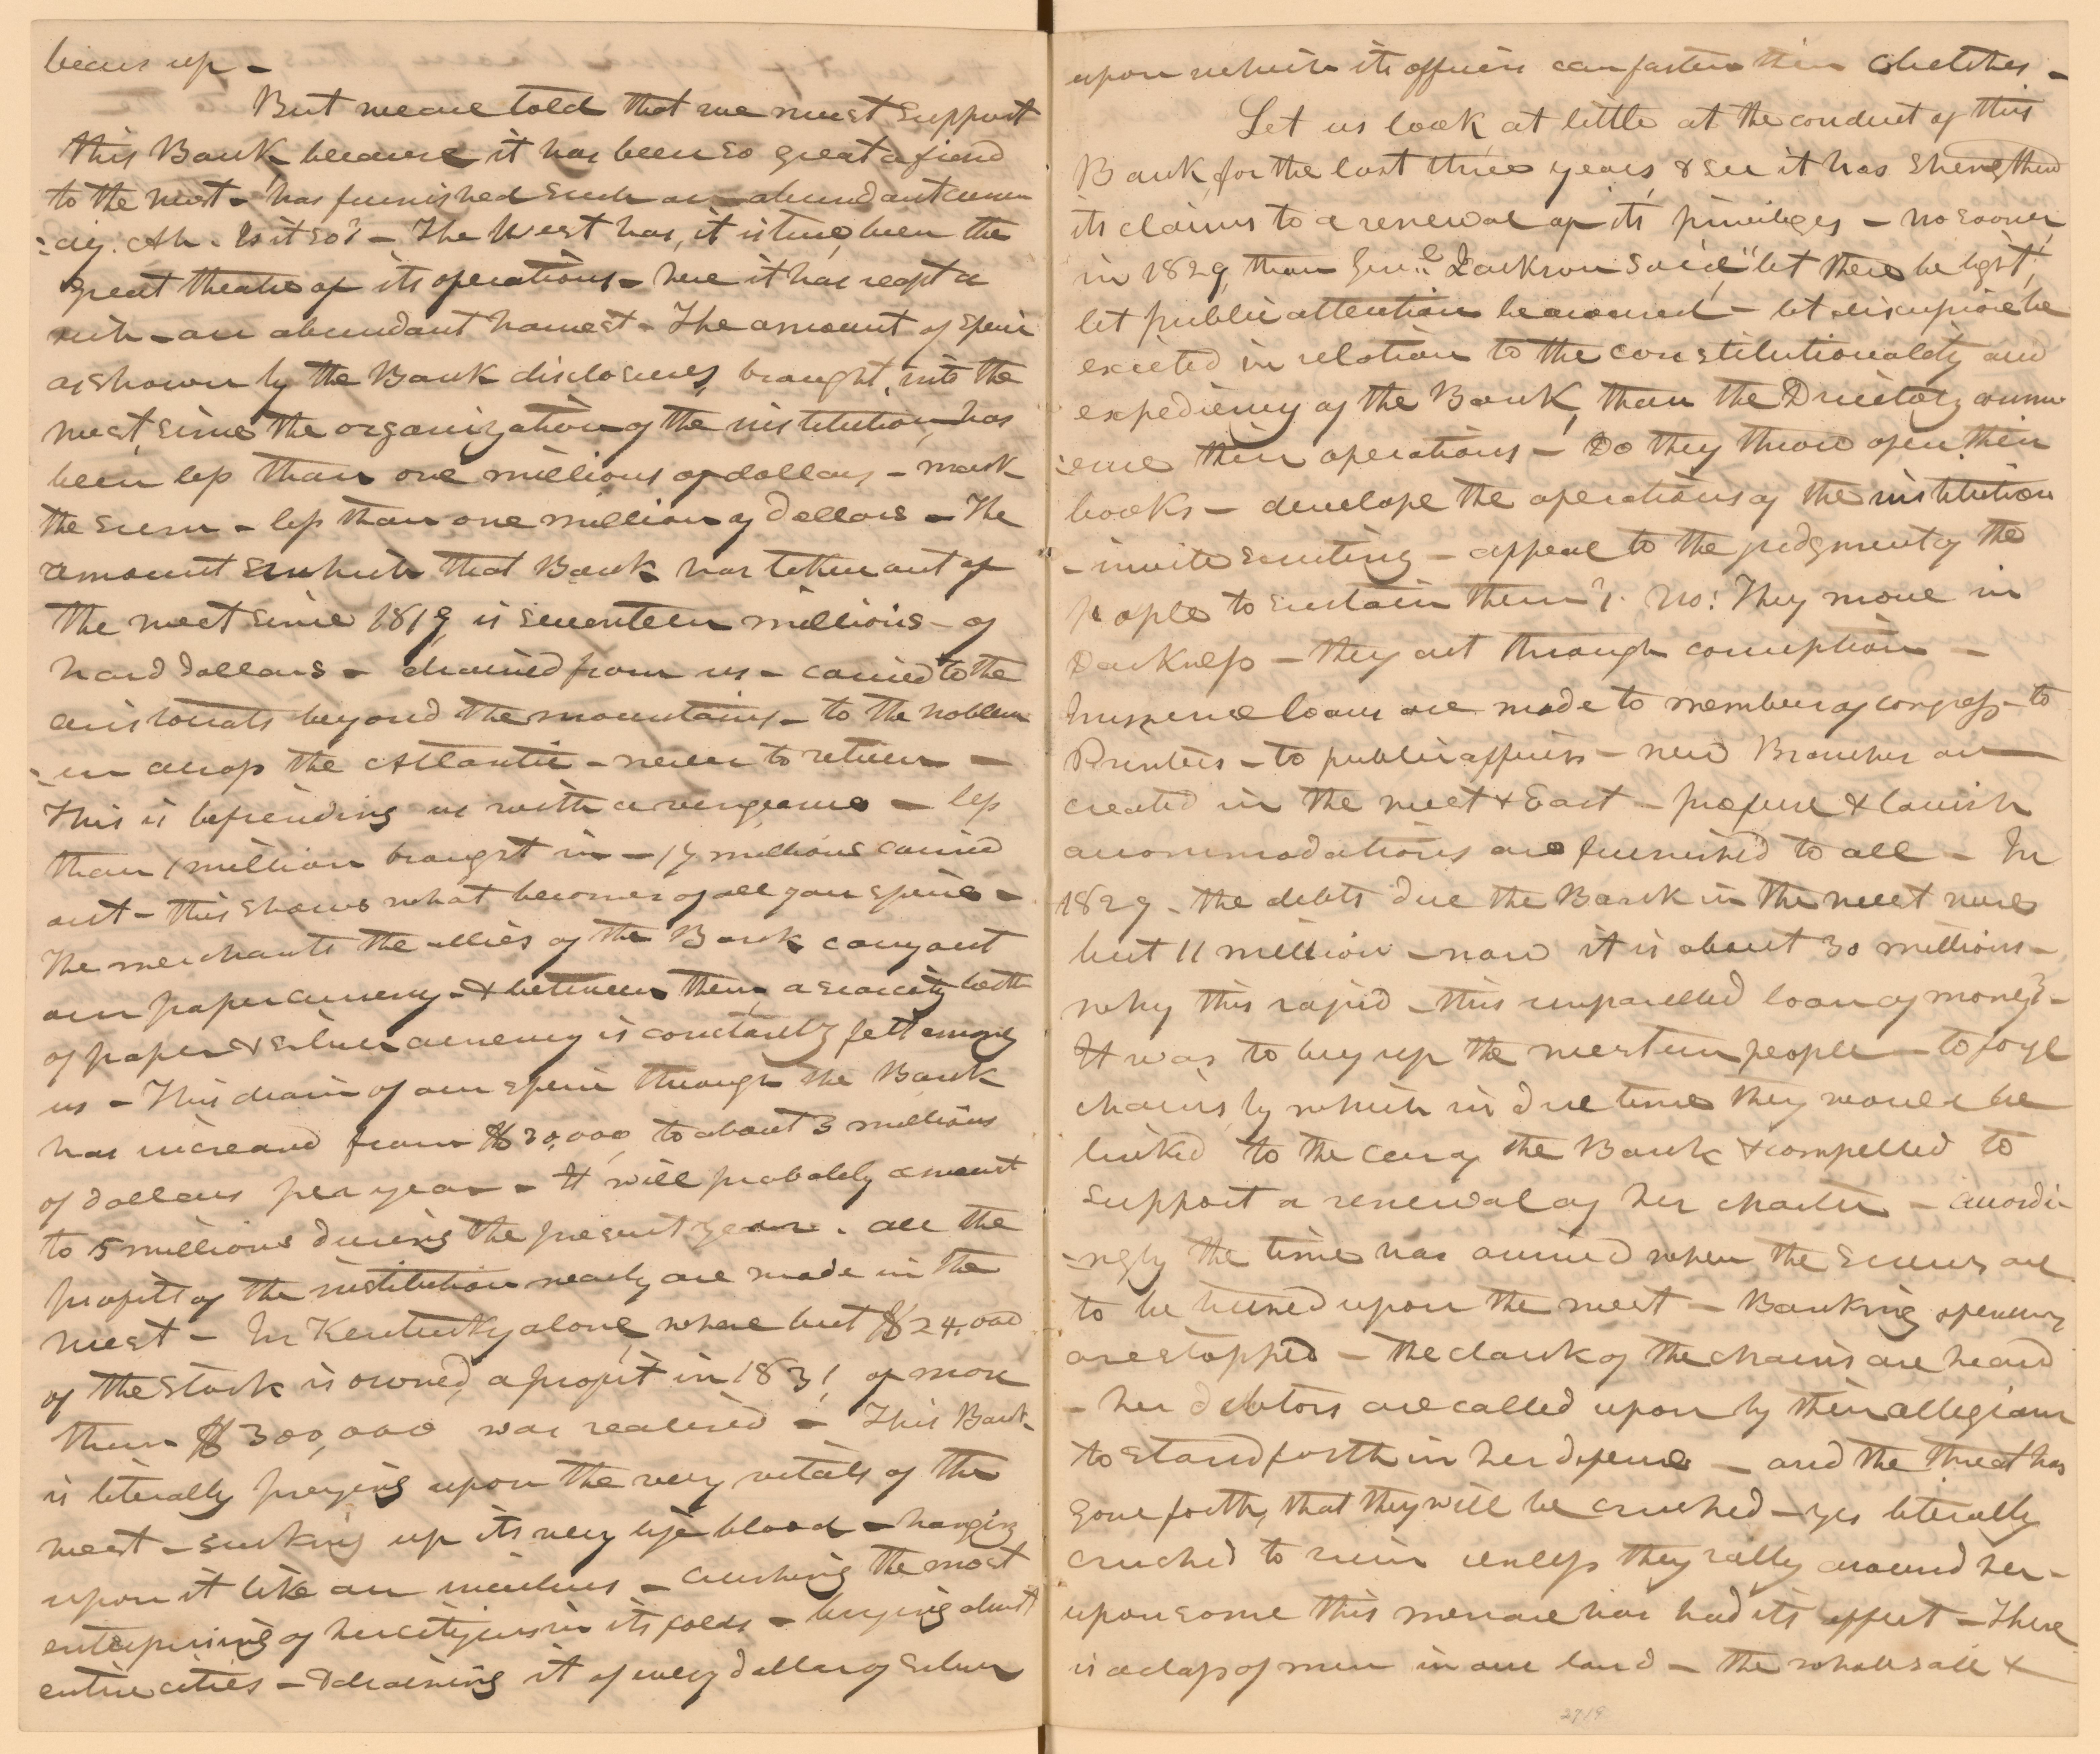 bears up –
But we are told that we must support
this Bank because it has been so great a friend
to the west – has furnished such an abundant curren
:cy. Ah. Is it so? – The West has, it is true, been the
great theatre of its operations – here it has reapt a
rich – an abundant harvest – The amount of specie
as shown by the Bank disclosures, brought into the
west, since the organization of the institution, has
been less than one millions of dollars – mark
the sum – less than one million of dollars – The
amount which that Bank has taken out of
the west since 1819 is seventeen millions – of
hard dollars – drained from us – carried to the
aristocrats beyond the mountains – to the noblem
:en across the Atlantic – never to return –
This is befriending us with a vengeance – less
than 1 million brought in – 17 millions carried
out – this shows what becomes of all your specie –
The merchants the allies of the Bank carry out
our paper currency – & between them, a scarcity both
of paper & silver currency is constantly felt among
us – This drain of our specie through the Bank
has increased from $20,000, to about 3 millions
of dollars per year – It will probably amount
to 5 millions during the present year. all the
profits of the institution nearly are made in the
west – In Kentucky alone, where but $24,000
of the Stock is owned, a profit in 1831, of more
than $300,000 was realised – This Bank
is literally preying upon the very vitals of the
west – sucking up its very life blood – hanging
upon it like an incubus – crushing the most
enterprising of her citizens in its folds – buying almost
entire cities – & draining it of every dollar of silver
upon which its officers can fasten their clutches –
Let us look at little at the conduct of this
Bank, for the last three years, & see it has strengthened
its claims to a renewal of its privileges – no sooner,
in 1829, than Genl. Jackson said, "let there be light,"
let public attention be aroused – let discussion be
excited in relation to the constitutionality and
expediency of the Bank, than the Directory comm
:ence their operations – Do they throw open their
books – develope the operations of the institution
– invite scrutiny – appeal to the judgment of the
people to sustain them? No! They move in
Darkness – they act through corruption –
Immense loans are made to members of congress – to
Printers – to public officers – new Branches are
created in the west & East – profuse & lavish
accommodations are furnished to all – In
1829 – the debts due the Bank in the west were
but 11 million – now it is about 30 millions –
why this rapid – this unparelled loan of money? –
It was to buy up the western people – to forge
chains by which in due time they would be
linked to the car of the Bank & compelled to
support a renewal of her charter – accordi
–ngly the time has arrived when the screws are
to be turned upon the west – Banking operations
are stopped – the clank of the chains are heard
– her debtors are called upon by their allegiance
to stand forth in her defence – and the threat has
gone forth, that they will be crushed – yes literally
crushed to ruin unless they rally around her –
upon some this menace has had its effect – There
is a class of men in our land – the wholesale &
2719